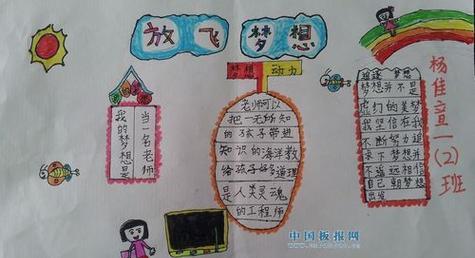 放飞梦想
梦想 动力
我的梦想是
当一名老师
老师可以
把一无所知
的孩子带进
知识的海洋教
给孩子好多道理
是人类灵魂
的工程师
追逐 梦想
梦想并不是
的美梦
我坚信在我
不断努力追
求下梦想并
不遥远相信
自己朝梦想
出发
杨佳宣一(2)班
中国板报网